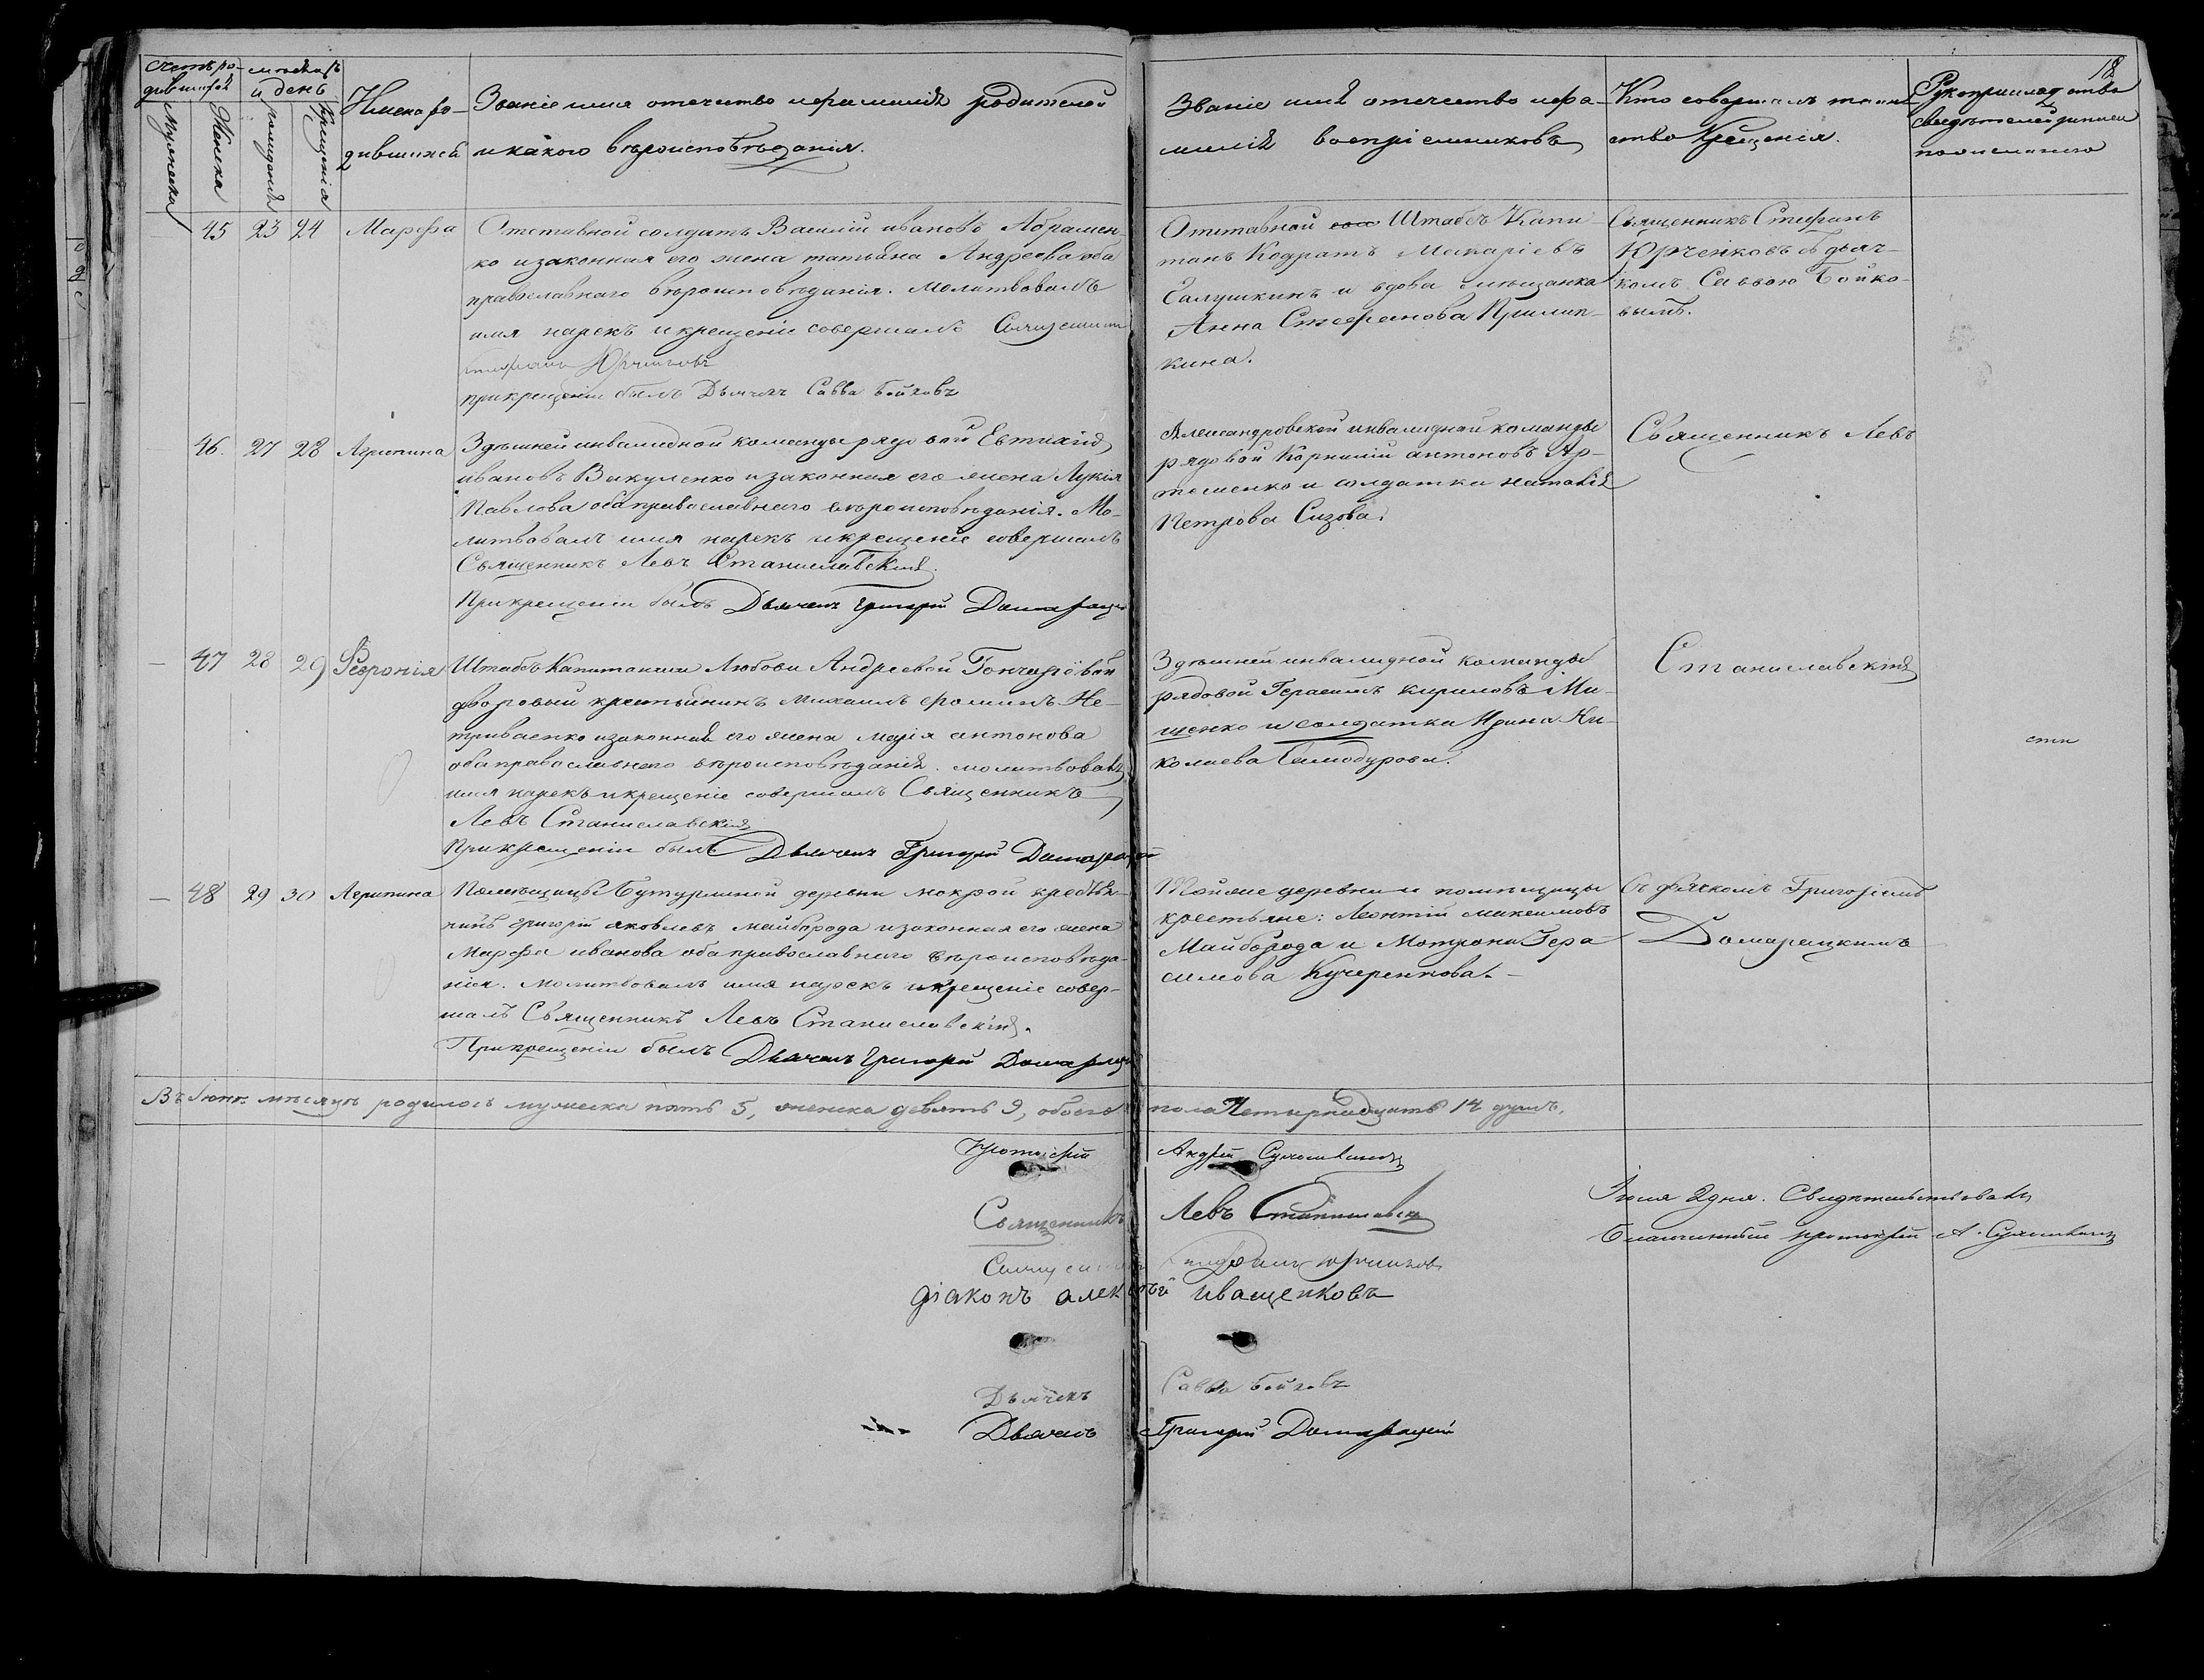 18
Счетъ ро-
дившихся
мѣсяцъ
и день
Мужеска
Женска
рожденія
Крещенія
Имена ро-
дившихся
Званіе имя отечество и фамилія родителей
и какого вѣроисповѣданія.
Званіе имя отечество и фа-
милія воспріемниковъ
Кто совершалъ таин-
ство Крещенія.
Рукоприкладство
свидѣтелей записи
по желанію
45 23 24 Марфа
Отставной солдатъ Василій ивановъ Абрамен-
ко и законная его жена татьяна Андреева оба
православнаго вѣроисповѣданія. Молитвовалъ
имя нарекъ и крещеніе совершалъ Священникъ
Стефанъ Юрченковъ
при крещеніи былъ Дьячекъ Савва Бойковъ
Отставной Штабсъ Капи-
танъ Кодратъ Макаріевъ
Галушкинъ и вдова мѣщанка
Анна Стефанова Прилип-
кина.
Священникъ Стефанъ
Юрченковъ съ дьяч-
комъ Саввою Бойко-
вымъ.
46. 27 28 Агрипина
Здѣшней инвалидной команды рядовой Евтихій
ивановъ Вакуленко и законная его жена Лукія
Павлова оба православнаго вѣроисповѣданія. Мо-
литвовалъ имя нарекъ и крещеніе совершалъ
Священникъ Левъ Станиславскій.
При крещеніи былъ Дьячекъ Григорій Домарацкій
Александровской инвалидной команды
рядовой Корнилій антоновъ Ар-
теменко и солдатка наталія
Петрова Сизова.
Священникъ Левъ
47 28 29 Феѳронія
Штабсъ Капитанши Любови Андреевой Гончаровой
дворовый крестьянинъ Михаилъ фоминъ Не-
триваенко и законная его жена марія антонова
оба православнаго вѣроисповѣданія. молитвовалъ
имя нарекъ и крещеніе совершалъ Священникъ
Левъ Станиславскій
При крещеніи былъ Дьячекъ Григорій Домарацкій
Здѣшней инвалидной команды
рядовой Герасимъ кириловъ Ми-
щенко и солдатка Ирина Ни-
колаева Белобурова.
Станиславскій
48 29 30 Агрипина
Помѣщицы Бутурлиной деревни мокрой крестья-
нинъ григорій яковлевъ майборода и законная его жена
Марфа иванова оба православнаго вѣроисповѣда-
нія. Молитвовалъ имя нарекъ и крещеніе совер-
шалъ Священникъ Левъ Станиславскій.
При крещеніи былъ Дьячекъ Григорій Домарацкій
Тойже деревни и помѣщицы
крестьяне: Леонтій максимовъ
Майборода и Мотрона Гера-
симова Кучеренкова.
съ дьячкомъ Григоріемъ
Домарацкимъ
Въ Іюнѣ мѣсяцѣ родилось мужеска пять 5, женска девять 9, обоего пола Четырнадцать 14 душъ.
Протоіерей Андрей
Священникъ Левъ Станиславскій
Священникъ Стефанъ Юрченковъ
діаконъ алексѣй иващенковъ
Дьячекъ Савва Бойковъ
Дьячекъ Григорій Домарацкій
Іюля 2 дня. Свидѣтельствовалъ
Благочинный протоіерей А.